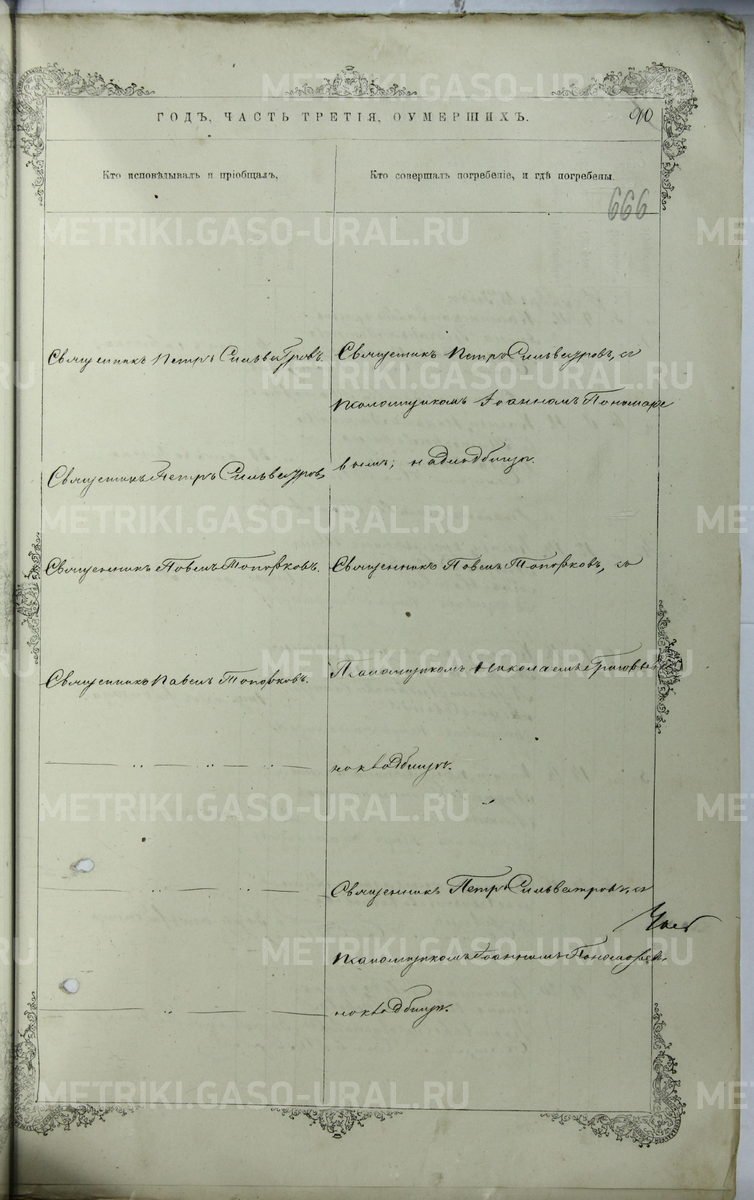 METRIKI.GASO-URAL.RU
ГОДЪ, ЧАСТЬ ТРЕТІЯ, ОУМЕРШИХЪ.
90
Кто исповѣдывалъ и пріобщалъ,
Кто совершалъ погребеніе, и гдѣ погребены.
666
Священникъ Петръ Сильвестровъ.
Священникъ Петръ Сильвестровъ, съ
псаломщикомъ Іоанномъ Пономаре
вымъ; на кладбищѣ.
Священникъ Петръ Сильвестровъ,
Священникъ Павелъ Топорковъ.
Священникъ Павелъ Топорковъ, съ
Священникъ Павелъ Топорковъ.
Псаломщикомъ Николаемъ
на кладбищѣ.
Священникъ Петръ Сильвестровъ, съ
псаломщикомъ Іоанномъ Пономарев.
на кладбищѣ.